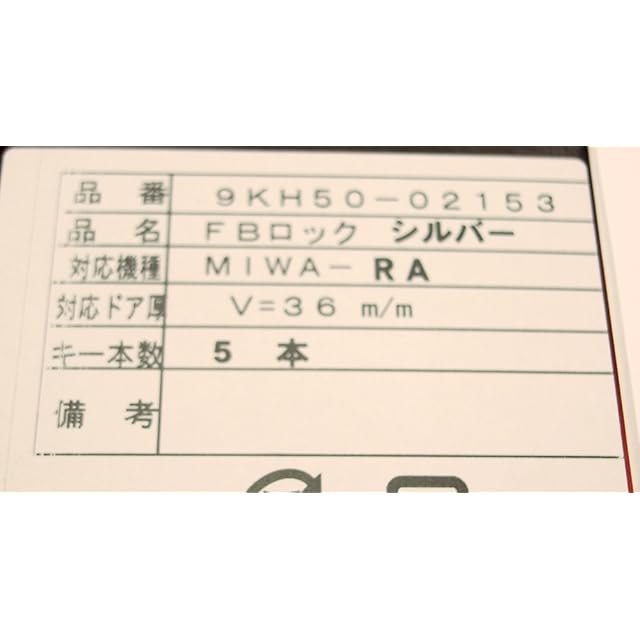 品番 9KH50-02153
品名 FBロック シルバー
対応機種 MIWA-RA
対応ドア厚 V=36 m/m
キー本数 5 本
備考